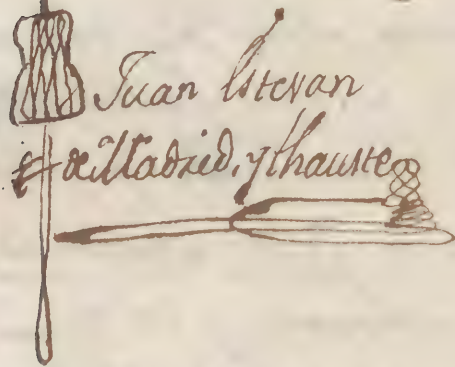 Juan Estevan
de Madrid, y Thauste